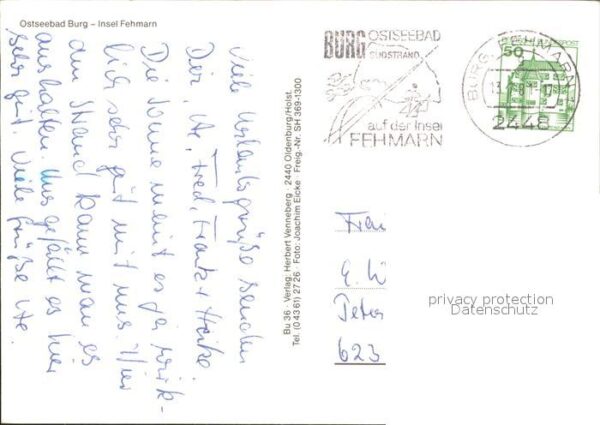 Ostseebad Burg – Insel Fehmarn
Viele Urlaubsgrüße senden
Dir, Ute, Fred, Frank + Heike.
Die Sonne meint es ja wirk-
lich sehr gut mit uns. Hier
am Strand kann man es
aushalten. Uns gefällt es hier
sehr gut. Viele Grüße Ute.
Bu 36 · Verlag: Herbert Venneberg · 2440 Oldenburg/Holst.
Tel. (0 43 61) 27 26 · Foto: Joachim Eicke · Freig.-Nr. SH 369-1300
BURG OSTSEEBAD
SÜDSTRAND
auf der Insel
FEHMARN
BURG, FEHMARN
50
2448
E. W
Peter
623
privacy protection
Datenschutz